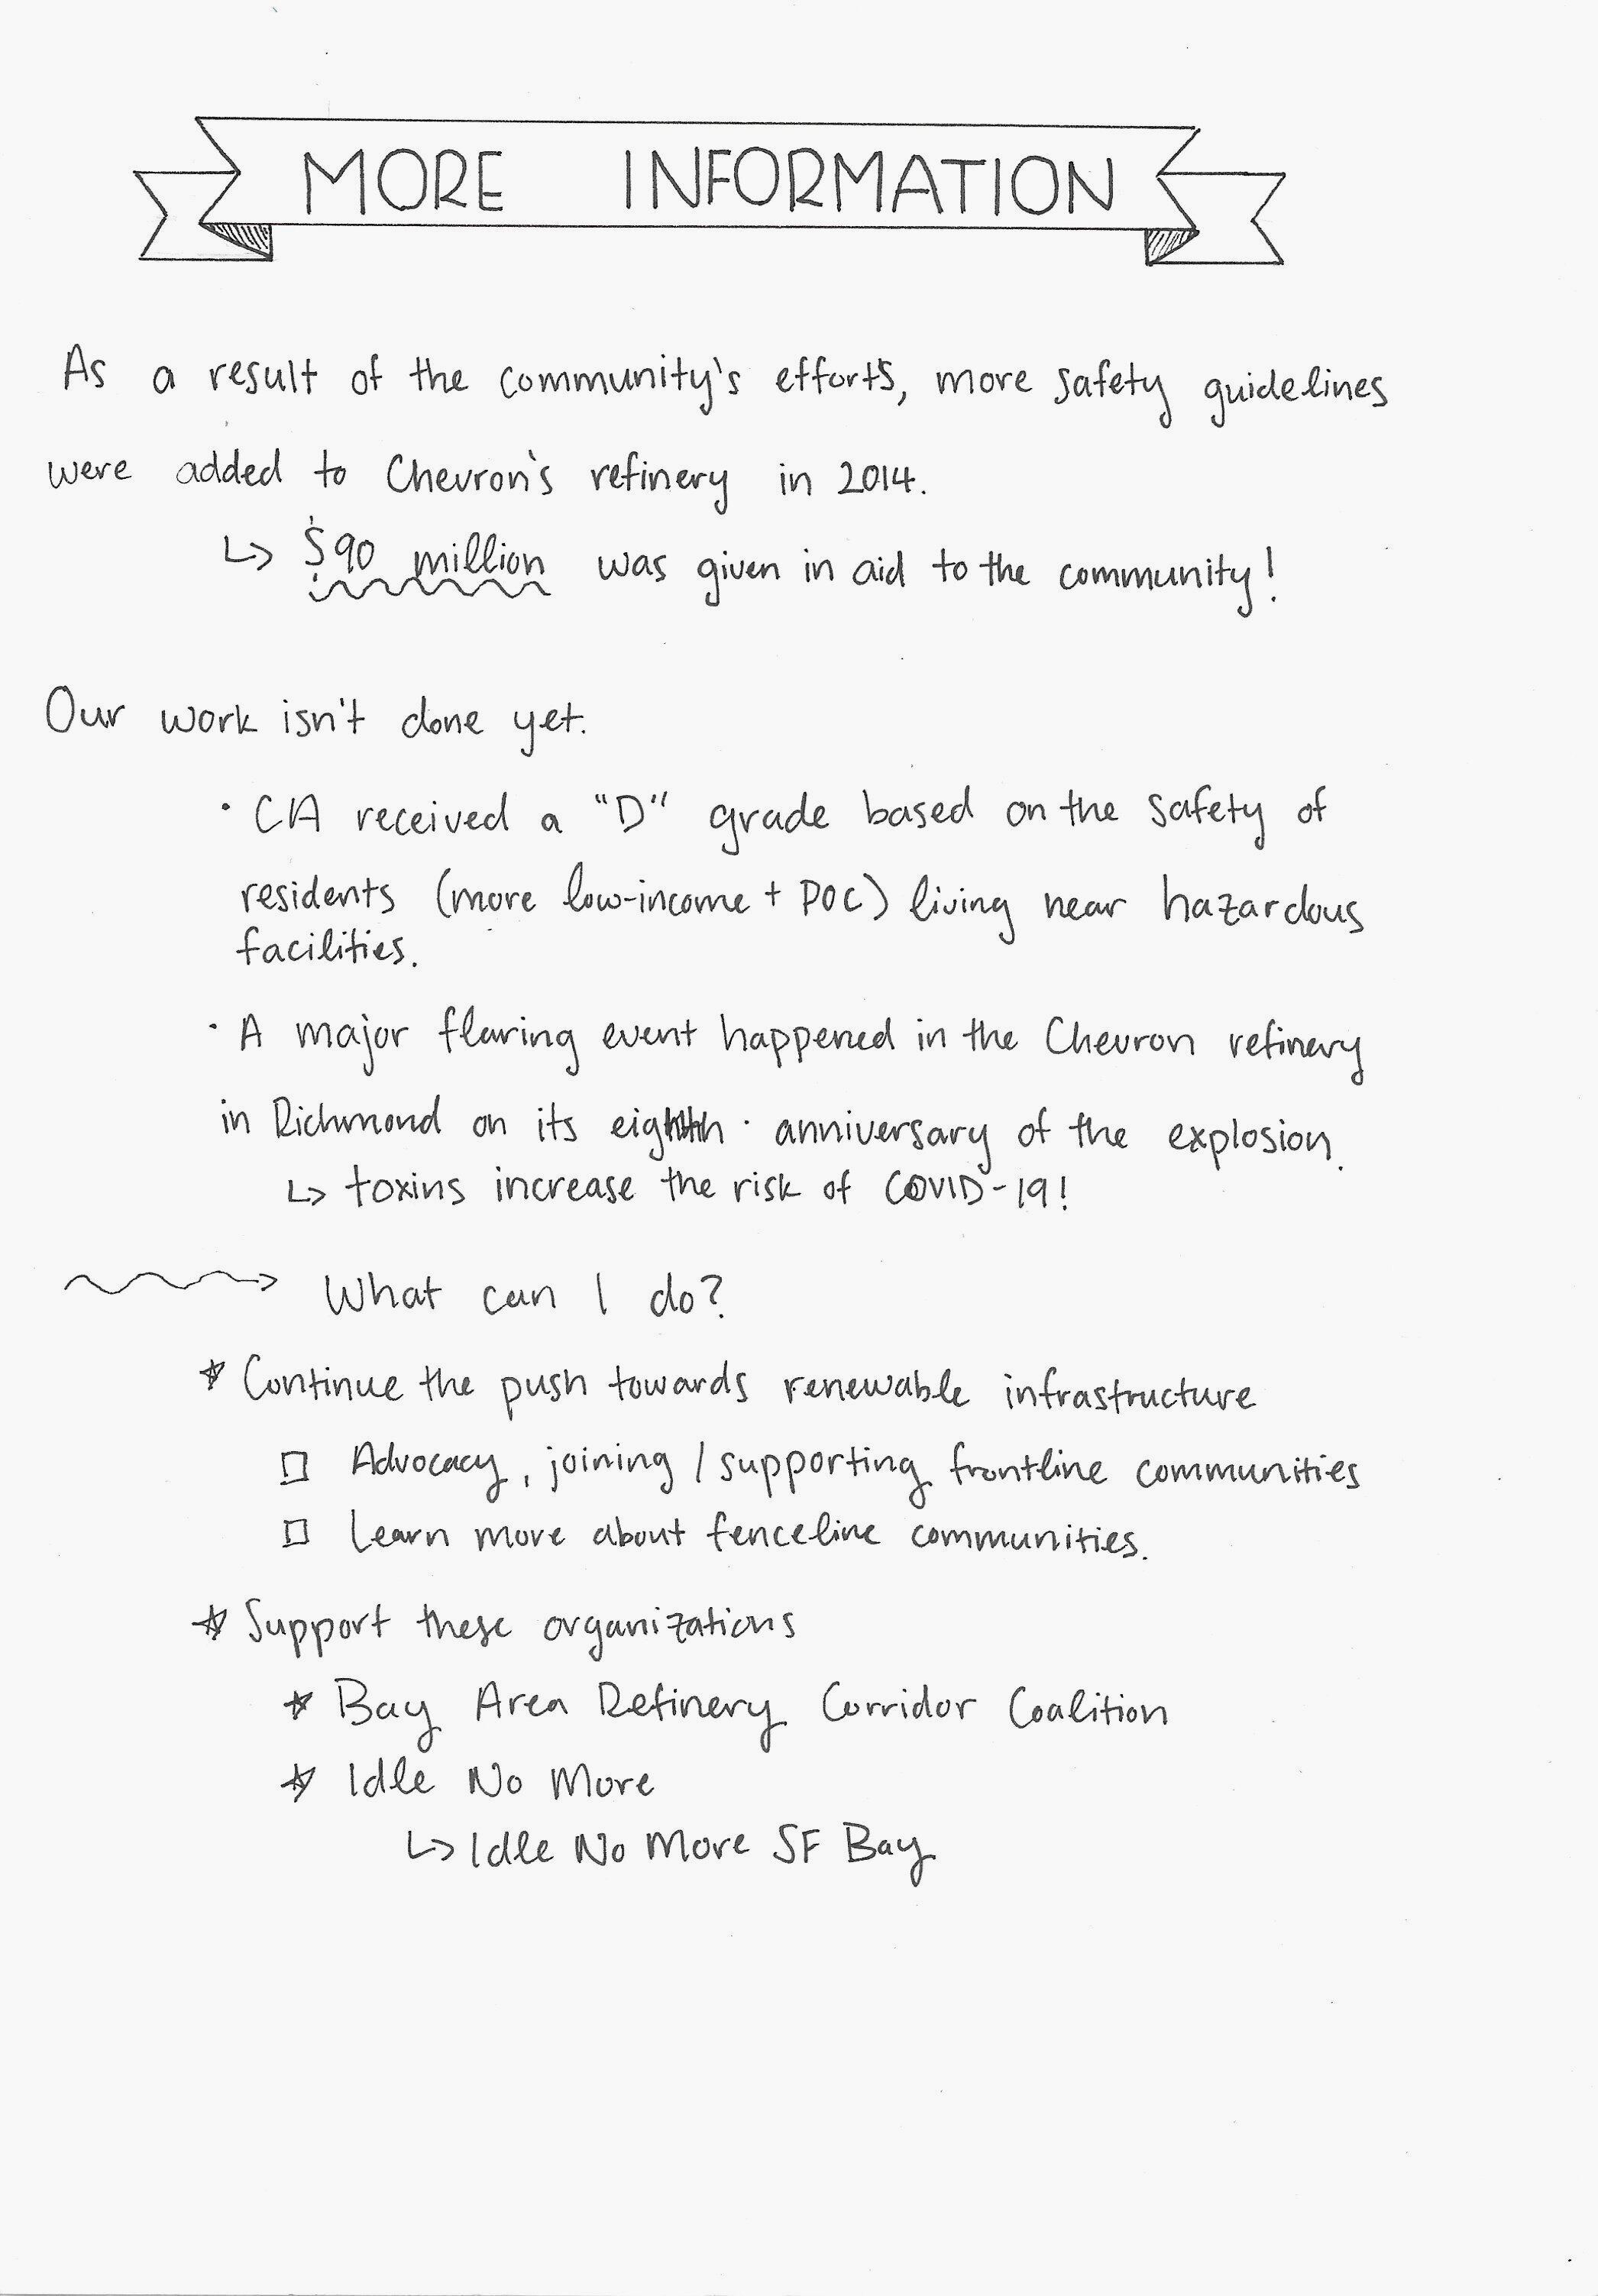 MORE INFORMATION
As a result of the community's efforts, more safety guidelines
were added to Chevron's refinery in 2014.
↳ $90 million was given in aid to the community!
Our work isn't done yet.
· CA received a "D" grade based on the safety of
residents (more low-income + POC) living near hazardous
facilities.
· A major flaring event happened in the Chevron refinery
in Richmond on its eighth anniversary of the explosion.
↳ toxins increase the risk of COVID-19!
What can I do?
☆ Continue the push towards renewable infrastructure
□ Advocacy, joining / supporting frontline communities
□ Learn more about fenceline communities.
☆ Support these organizations
☆ Bay Area Refinery Corridor Coalition
☆ Idle No More
↳ Idle No More SF Bay